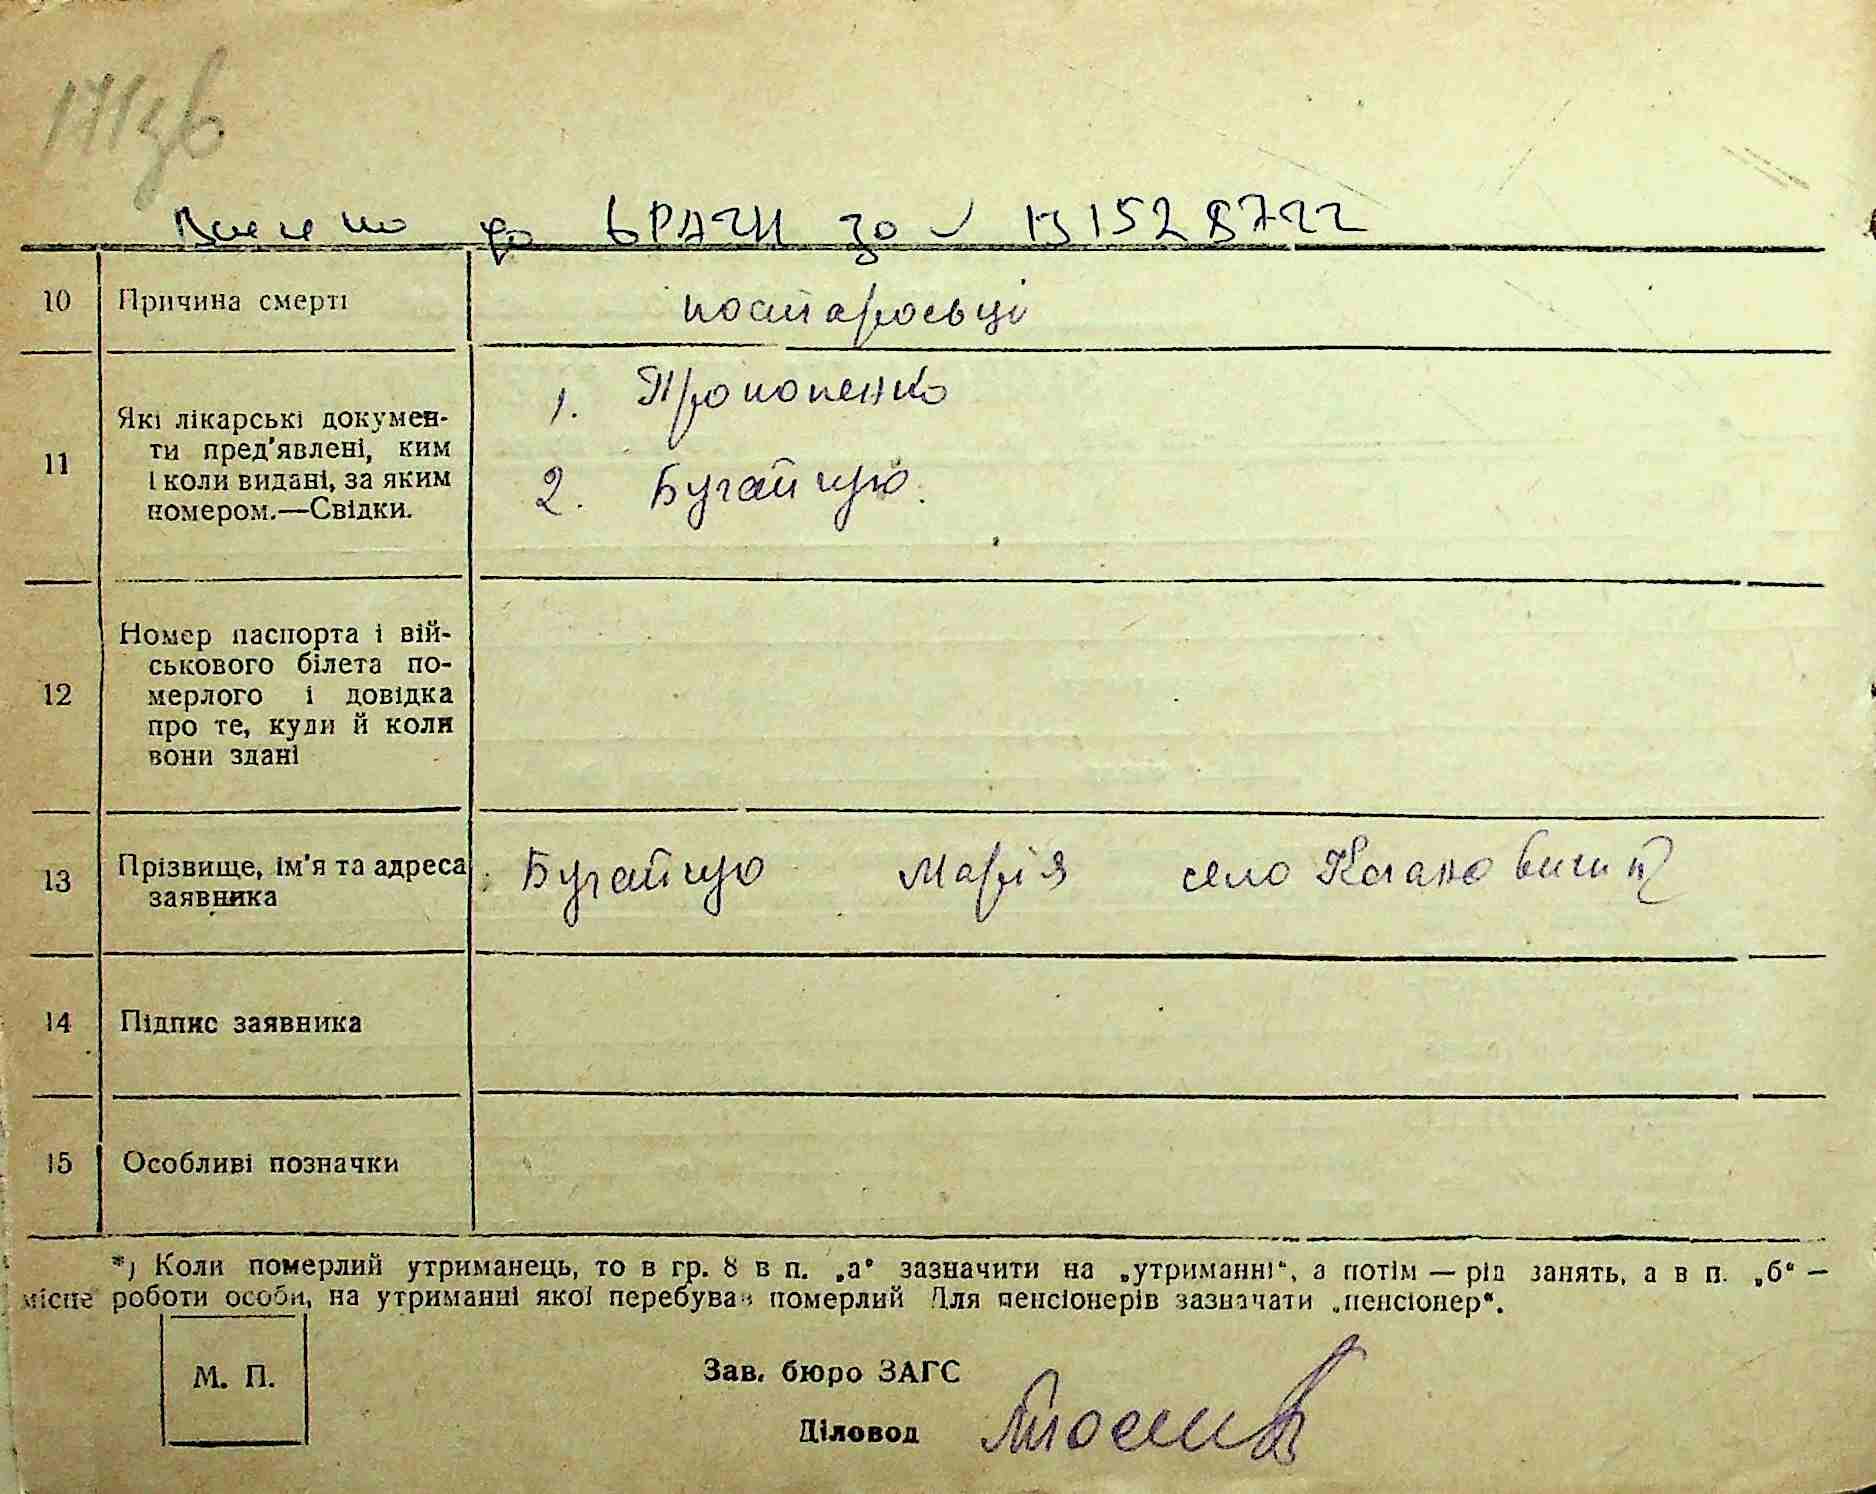 171зв
Внесено до ДРАЦСГ за № 13152 8722
10 Причина смерті по старосьці
11 Які лікарські докумен-
ти пред'явлені, ким
і коли видані, за яким
номером.—Свідки.
1. Прокопенко
2. Бугайцую.
12 Номер паспорта і вій-
ськового білета по-
мерлого і довідка
про те, куди й коли
вони здані
13 Прізвище, ім'я та адреса
заявника
Бугайцую Марія село Каганович
14 Підпис заявника
15 Особливі позначки
*) Коли померлий утриманець, то в гр. 8 в п. „а“ зазначити на „утриманні“, а потім — рід занять, а в п. „б“ —
місце роботи особи, на утриманні якої перебував померлий Для пенсіонерів зазначати „пенсіонер“.
М. П.
Зав. бюро ЗАГС
Діловод